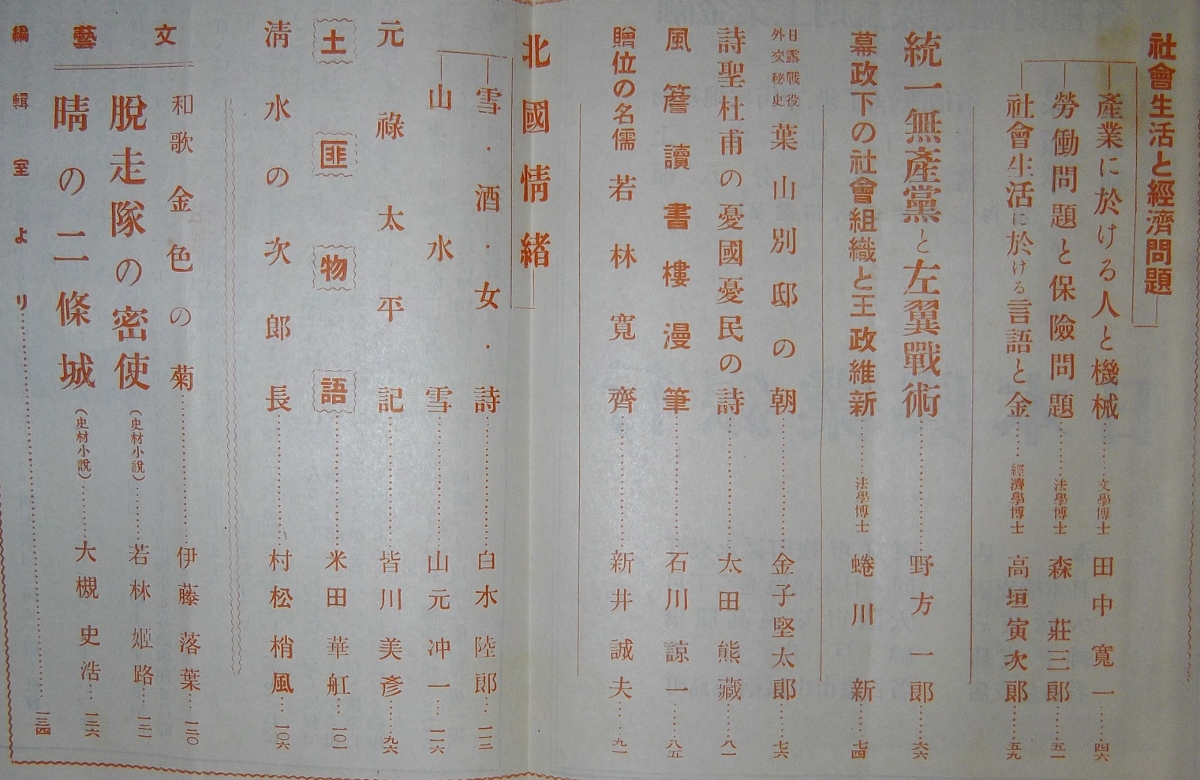 社會生活と經濟問題
產業に於ける人と機械……文學博士 田中寬一……四六
勞働問題と保險問題……法學博士 森莊三郎……五一
社會生活に於ける言語と金……經濟學博士 高垣寅次郎……五九
統一無產黨と左翼戰術……野方一郎……六六
幕政下の社會組織と王政維新……法學博士 蜷川新……七四
日露戰役外交秘史 葉山別邸の朝……金子堅太郎……七六
詩聖杜甫の憂國憂民の詩……太田熊藏……八一
風簷讀書樓漫筆……石川諒一……八五
贈位の名儒若林寬齊……新井誠夫……九一
北國情緒
雪・酒・女・詩……白水陸郎……一一二
山水雪……山元冲一……一一六
元祿太平記……皆川美彥……九六
土匪物語……米田華舡……一〇一
淸水の次郎長……村松梢風……一〇六
文藝
和歌 金色の菊……伊藤落葉……一二〇
脫走隊の密使（史材小說）……若林姬路……一二一
晴の二條城（史材小說）……大槻史浩……一二六
編輯室より……一三四